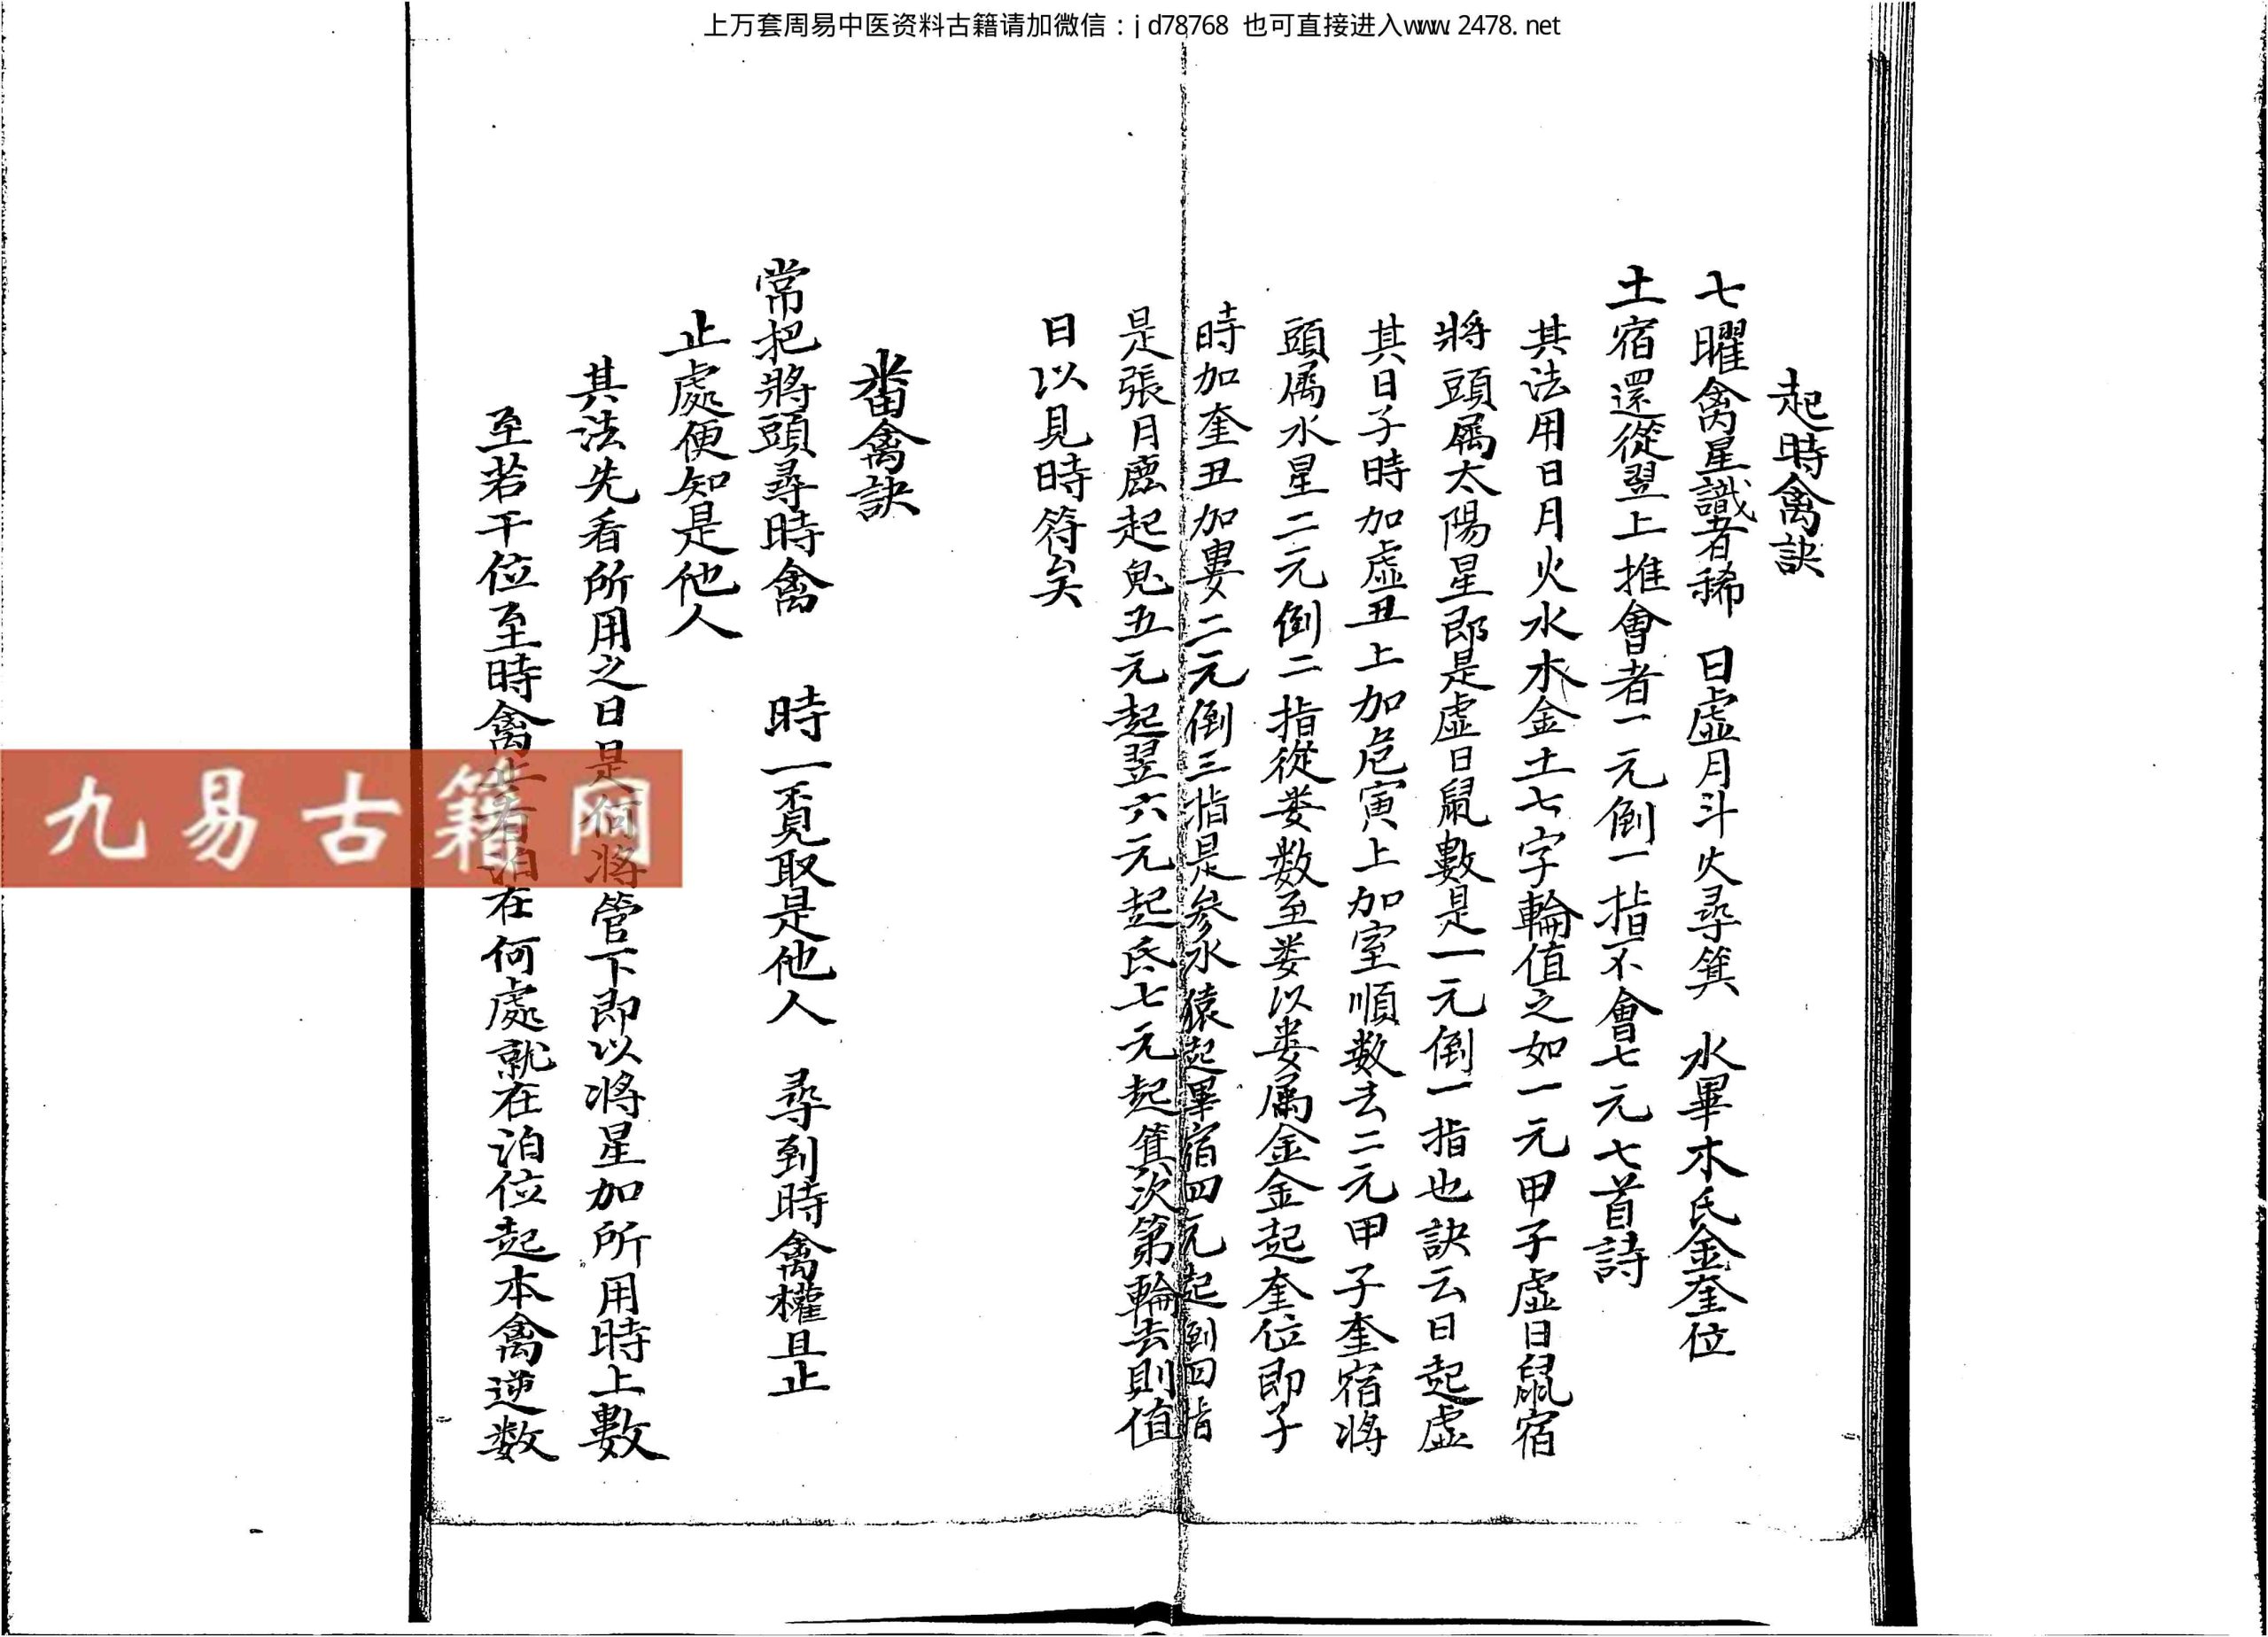 上万套周易中医资料古籍请加微信：jd78768 也可直接进入www.2478.net
起時禽訣
七曜禽星識者稀 日虛月斗火尋箕 水畢木氐金奎位
土宿還從翌上推會者一元倒一指不會七元七首詩
其法用日月火水木金土七字輪值之如一元甲子虛日鼠宿
將頭屬太陽星即是虛日鼠數是一元倒一指也訣云日起虛
其日子時加虛丑上加危寅上加室順数去二元甲子奎宿將
頭属水星二元倒二指從娄数至娄以娄属金金起奎位即子
時加奎丑加婁二元倒三指是参水猿起畢宿四元起倒四指
是張月鹿起鬼五元起翌六元起氐七元起箕次第輪去則值
日以見時符矣
畨禽訣
常把將頭尋時禽 時一覔取是他人 尋到時禽權且止
止處便知是他人
其法先看所用之日是何將管下即以將星加所用時上數
至若干位至時禽止看泊在何處就在泊位起本禽逆数
九易古籍网